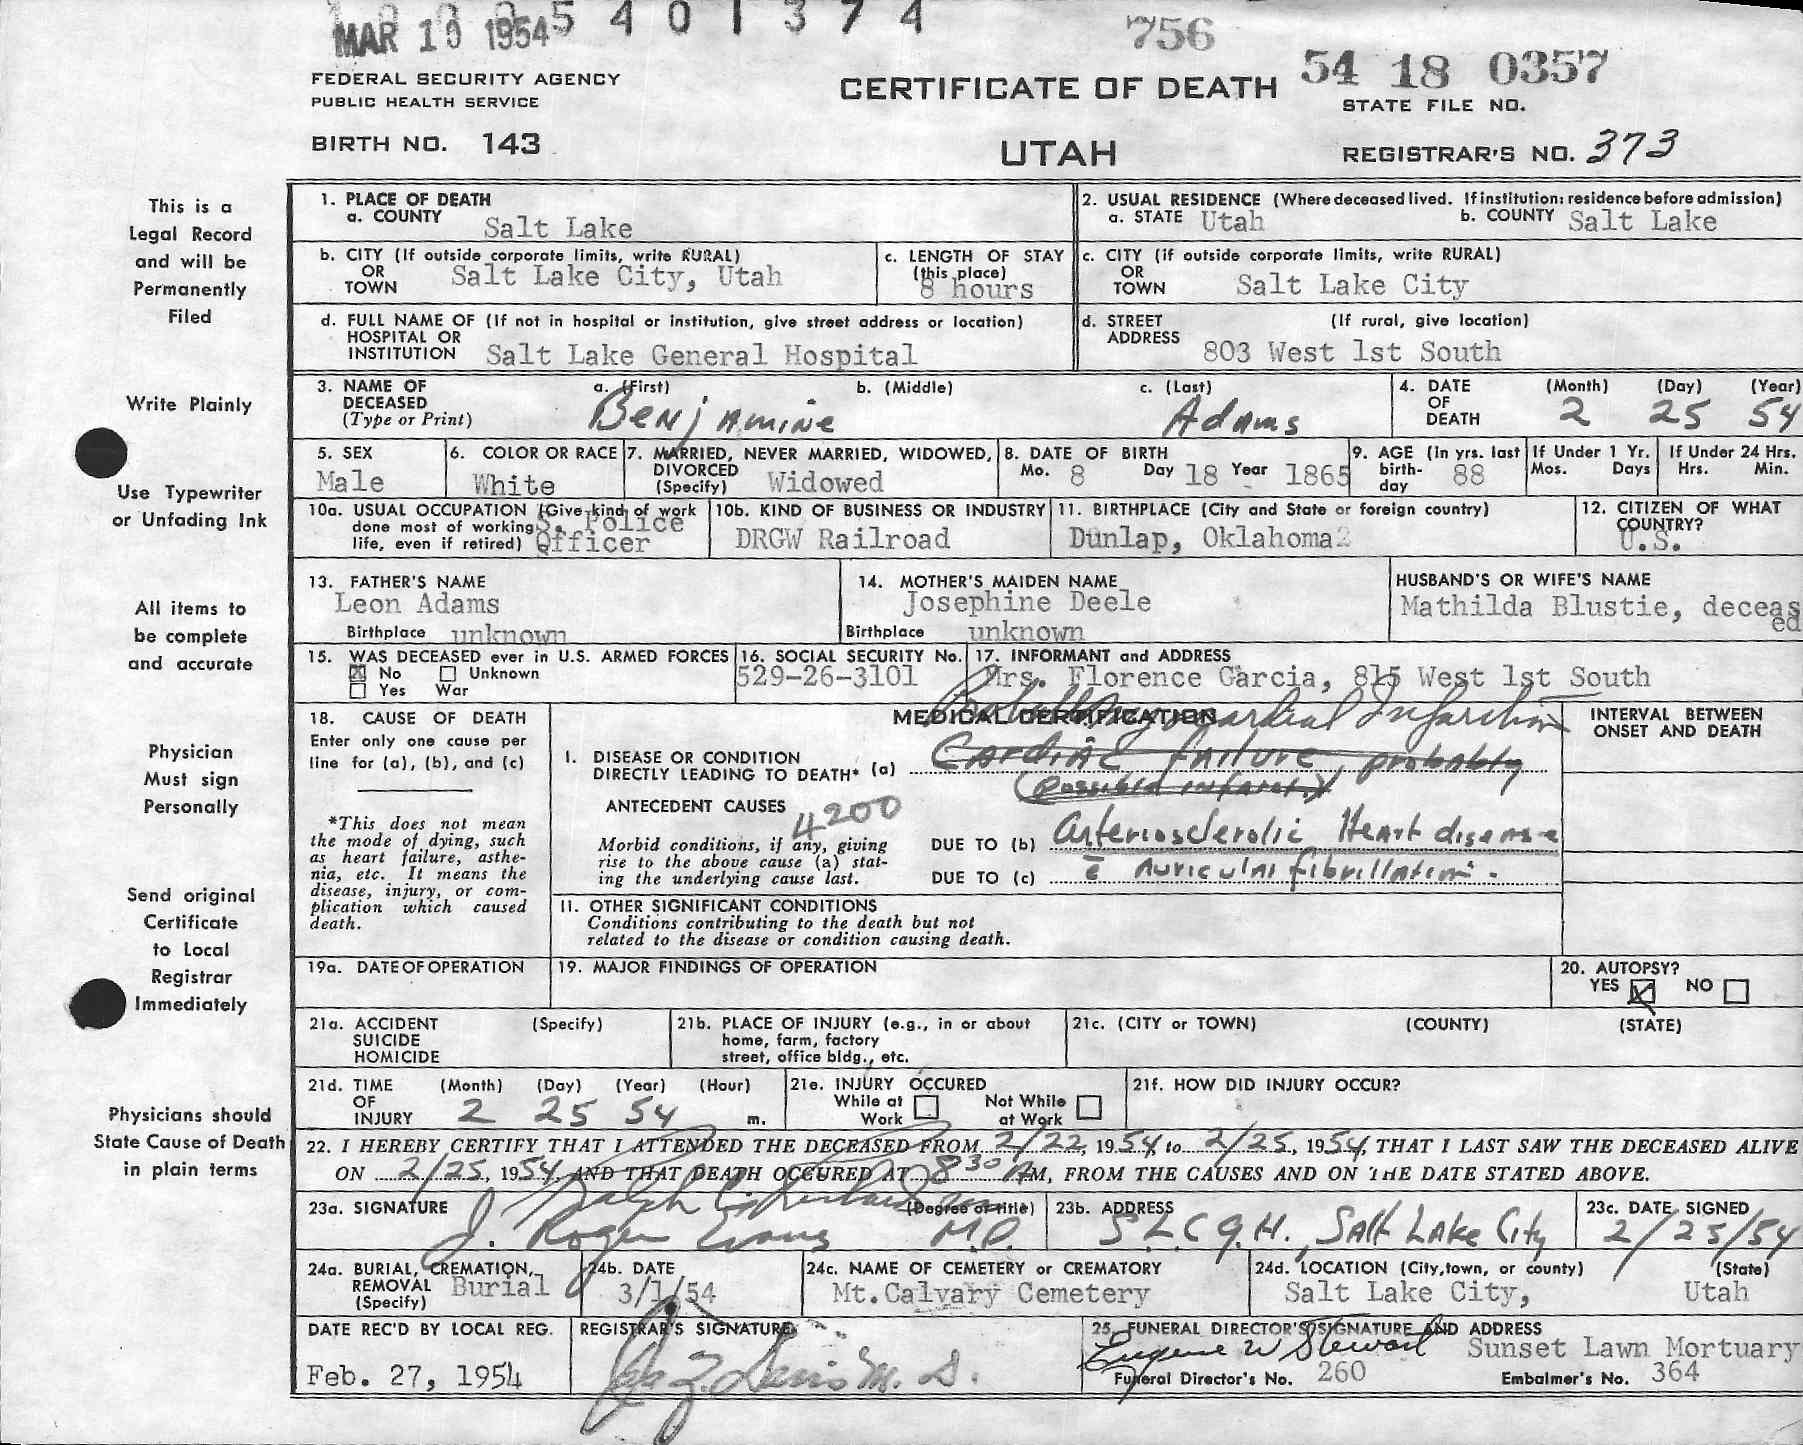 MAR 10 1954
5 4 0 1 3 7 4
756
FEDERAL SECURITY AGENCY
PUBLIC HEALTH SERVICE
CERTIFICATE OF DEATH
54 18 0357
STATE FILE NO.
BIRTH NO. 143
UTAH
REGISTRAR'S NO. 373
This is a
Legal Record
and will be
Permanently
Filed
Write Plainly
Use Typewriter
or Unfading Ink
All items to
be complete
and accurate
Physician
Must sign
Personally
Send original
Certificate
to Local
Registrar
Immediately
Physicians should
State Cause of Death
in plain terms
1. PLACE OF DEATH
a. COUNTY Salt Lake
2. USUAL RESIDENCE (Where deceased lived. If institution: residence before admission)
a. STATE Utah b. COUNTY Salt Lake
b. CITY (If outside corporate limits, write RURAL)
OR
TOWN Salt Lake City, Utah
c. LENGTH OF STAY
(this place)
8 hours
c. CITY (if outside corporate limits, write RURAL)
OR
TOWN Salt Lake City
d. FULL NAME OF (If not in hospital or institution, give street address or location)
HOSPITAL OR
INSTITUTION Salt Lake General Hospital
d. STREET (If rural, give location)
ADDRESS 803 West 1st South
3. NAME OF DECEASED
(Type or Print)
a. (First) b. (Middle) c. (Last)
Benjamine Adams
4. DATE OF DEATH (Month) (Day) (Year)
2 25 54
5. SEX
Male
6. COLOR OR RACE
White
7. MARRIED, NEVER MARRIED, WIDOWED,
DIVORCED
(Specify) Widowed
8. DATE OF BIRTH
Mo. 8 Day 18 Year 1865
9. AGE (In yrs. last
birth-
day 88
If Under 1 Yr.
Mos. Days
If Under 24 Hrs.
Hrs. Min.
10a. USUAL OCCUPATION (Give kind of work
done most of working
life, even if retired)
S. Police
Officer
10b. KIND OF BUSINESS OR INDUSTRY
DRGW Railroad
11. BIRTHPLACE (City and State or foreign country)
Dunlap, Oklahoma
12. CITIZEN OF WHAT
COUNTRY?
U.S.
13. FATHER'S NAME
Leon Adams
Birthplace unknown
14. MOTHER'S MAIDEN NAME
Josephine Deele
Birthplace unknown
HUSBAND'S OR WIFE'S NAME
Mathilda Blustie, deceas
ed
15. WAS DECEASED ever in U.S. ARMED FORCES
No Unknown
Yes War
16. SOCIAL SECURITY No.
529-26-3101
17. INFORMANT and ADDRESS
Mrs. Florence Garcia, 815 West 1st South
18. CAUSE OF DEATH
Enter only one cause per
line for (a), (b), and (c)
*This does not mean
the mode of dying, such
as heart failure, asthe-
nia, etc. It means the
disease, injury, or com-
plication which caused
death.
MEDICAL CERTIFICATION
Myocardial Infarction
I. DISEASE OR CONDITION
DIRECTLY LEADING TO DEATH* (a) Cardiac failure, probably
(possible infarct.)
ANTECEDENT CAUSES
4200
Morbid conditions, if any, giving
rise to the above cause (a) stat-
ing the underlying cause last.
DUE TO (b) Arteriosclerotic Heart disease
DUE TO (c) c̄ Auricular fibrillation.
INTERVAL BETWEEN
ONSET AND DEATH
II. OTHER SIGNIFICANT CONDITIONS
Conditions contributing to the death but not
related to the disease or condition causing death.
19a. DATE OF OPERATION
19. MAJOR FINDINGS OF OPERATION
20. AUTOPSY?
YES NO
21a. ACCIDENT (Specify)
SUICIDE
HOMICIDE
21b. PLACE OF INJURY (e.g., in or about
home, farm, factory
street, office bldg., etc.
21c. (CITY or TOWN) (COUNTY) (STATE)
21d. TIME (Month) (Day) (Year) (Hour)
OF
INJURY 2 25 54 m.
21e. INJURY OCCURED
While at Work Not While at Work
21f. HOW DID INJURY OCCUR?
22. I HEREBY CERTIFY THAT I ATTENDED THE DECEASED FROM 2/22, 1954, to 2/25, 1954, THAT I LAST SAW THE DECEASED ALIVE
ON 2/25, 1954, AND THAT DEATH OCCURED AT 8 30 AM, FROM THE CAUSES AND ON THE DATE STATED ABOVE.
23a. SIGNATURE (Degree or title)
Ralph C.
J. Roger Evans M.D.
23b. ADDRESS
SLCGH., Salt Lake City
23c. DATE SIGNED
2/25/54
24a. BURIAL, CREMATION,
REMOVAL
(Specify) Burial
24b. DATE
3/1/54
24c. NAME OF CEMETERY or CREMATORY
Mt.Calvary Cemetery
24d. LOCATION (City, town, or county) (State)
Salt Lake City, Utah
DATE REC'D BY LOCAL REG.
Feb. 27, 1954
REGISTRAR'S SIGNATURE
M. D.
25. FUNERAL DIRECTOR'S SIGNATURE AND ADDRESS
Eugene W Stewart Sunset Lawn Mortuary
Funeral Director's No. 260 Embalmer's No. 364